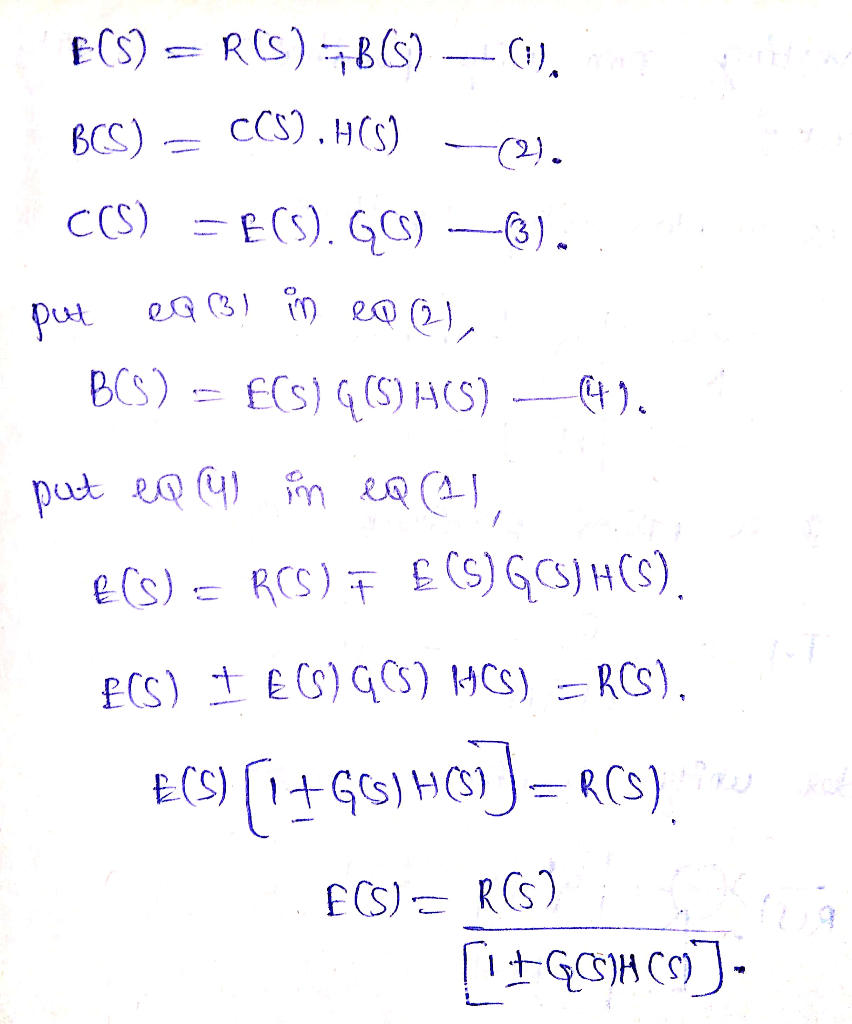 E(S) = R(S) ∓B(S) — (1).
B(S) = C(S). H(S) — (2).
C(S) = E(S). G(S) — (3).
put eq (3) in eq (2),
B(S) = E(S) G(S) H(S) — (4).
put eq (4) in eq (1),
E(S) = R(S) ∓ E(S) G(S) H(S).
E(S) ± E(S) G(S) H(S) = R(S).
E(S) [1 ± G(S) H(S)] = R(S).
E(S) = R(S)
[1 ± G(S)H(S)].